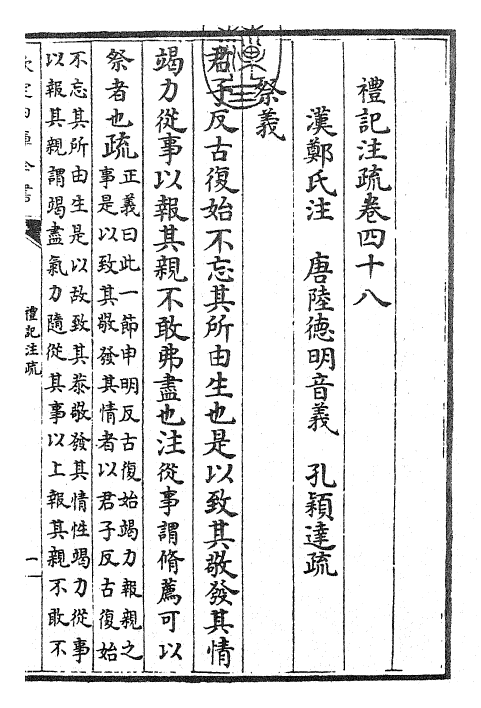 禮記注疏卷四十八
漢鄭氏注　唐陸德明音義　孔穎達疏
祭義
君子反古復始不忘其所由生也是以致其敬發其情
竭力從事以報其親不敢弗盡也注從事謂脩薦可以
祭者也疏正義曰此一節申明反古復始竭力報親之
事是以致其敬發其情者以君子反古復始
不忘其所由生是以故致其恭敬發其情性竭力從事
以報其親謂竭盡氣力隨從其事以上報其親不敢不
欽定四庫全書
禮記注疏
一